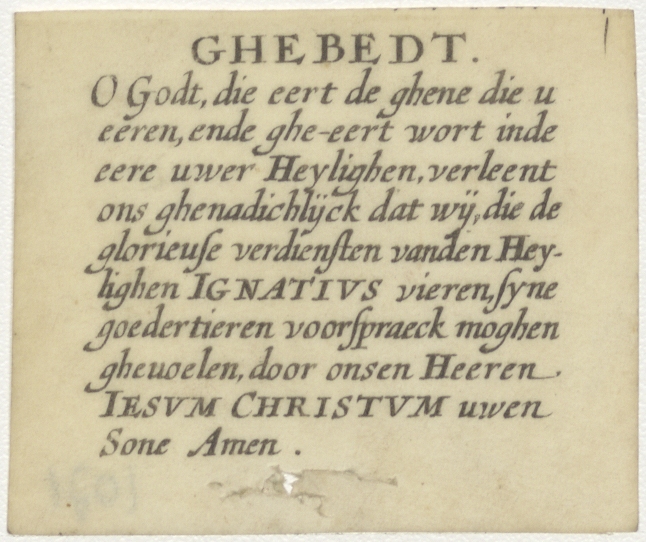 GHEBEDT.
O Godt, die eert de ghene die u
eeren, ende ghe-eert wort inde
eere uwer Heylighen, verleent
ons ghenadichlijck dat wij, die de
glorieuſe verdienſten vanden Hey-
lighen IGNATIVS vieren, ſyne
goedertieren voorſpraeck moghen
gheuoelen, door onsen Heeren.
IESVM CHRISTVM uwen
Sone Amen.